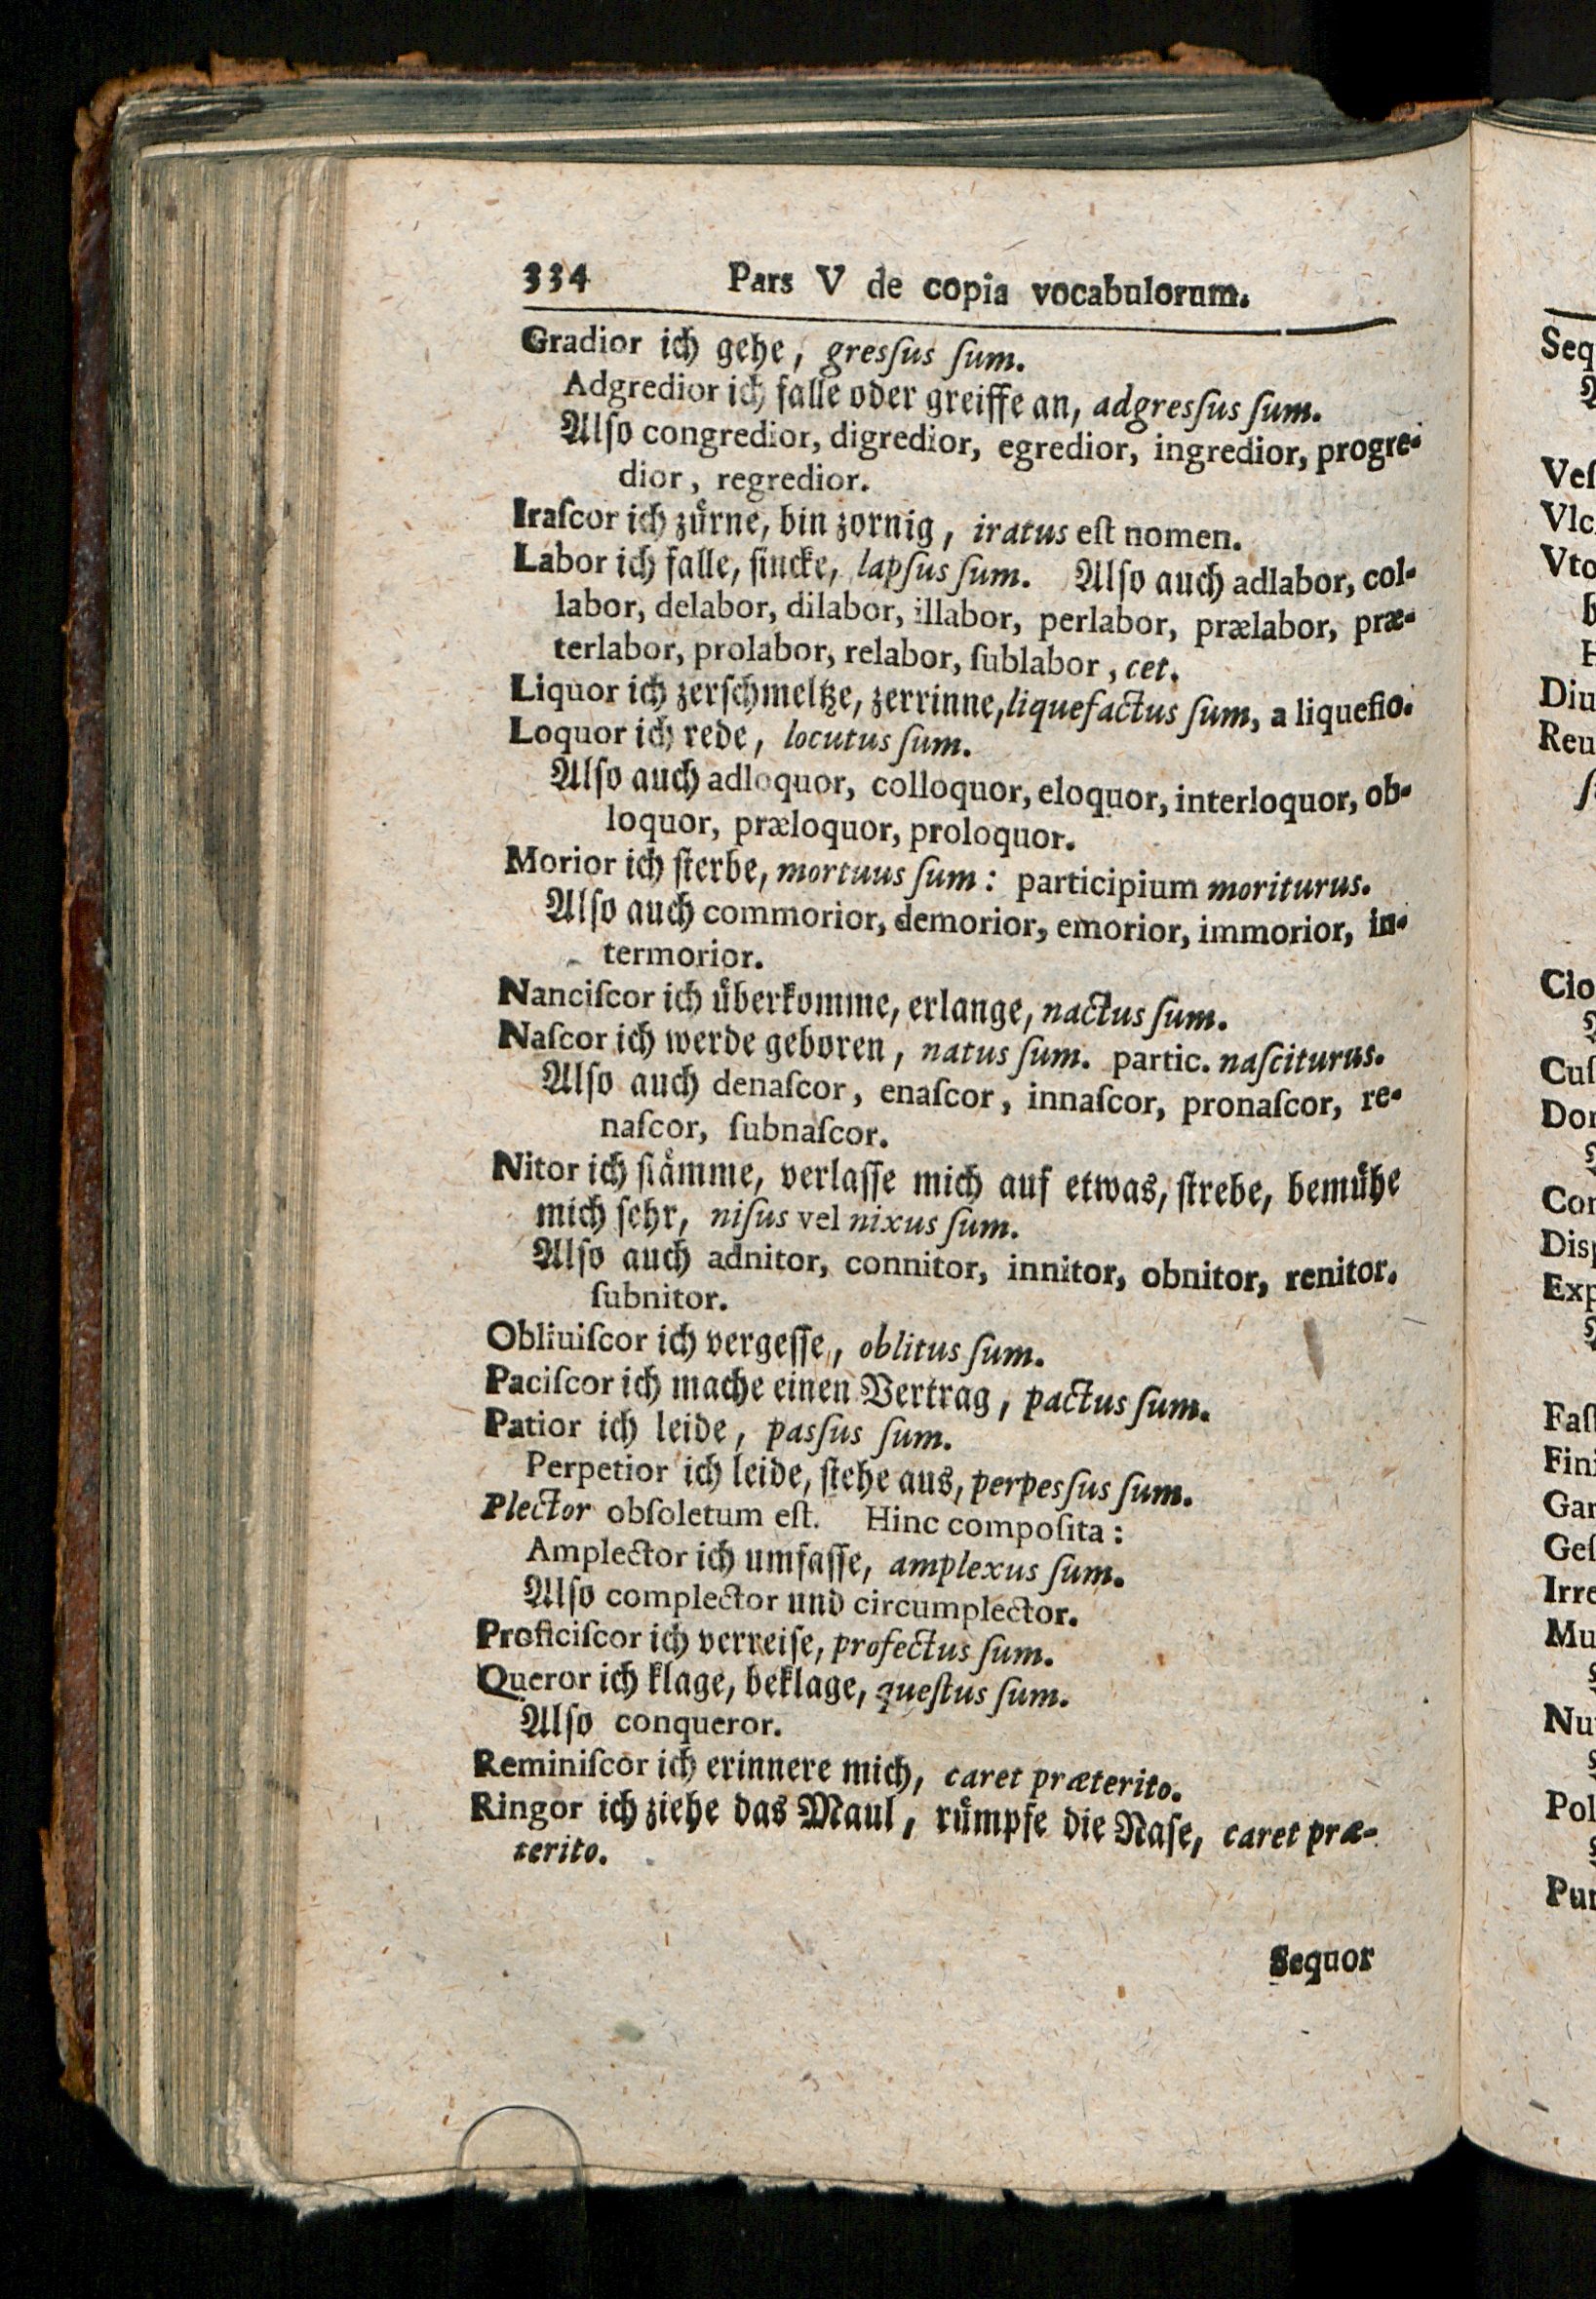 334 Pars V de copia vocabulorum.
Gradior ich gehe, gresſus ſum.
Adgredior ich falle oder greiffe an, adgresſus ſum.
Alſo congredior, digredior, egredior, ingredior, progre-
dior, regredior.
Iraſcor ich zuͤrne, bin zornig, iratus eſt nomen.
Labor ich falle, ſincke, lapſus ſum. Alſo auch adlabor, col-
labor, delabor, dilabor, illabor, perlabor, prælabor, præ-
terlabor, prolabor, relabor, ſublabor, cet.
Liquor ich zerſchmeltze, zerrinne, liquefactus ſum, a liquefio.
Loquor ich rede, locutus ſum.
Alſo auch adloquor, colloquor, eloquor, interloquor, ob-
loquor, præloquor, proloquor.
Morior ich ſterbe, mortuus ſum: participium moriturus.
Alſo auch commorior, demorior, emorior, immorior, in-
termorior.
Nanciſcor ich uͤberkomme, erlange, nactus ſum.
Naſcor ich werde geboren, natus ſum. partic. naſciturus.
Alſo auch denaſcor, enaſcor, innaſcor, pronaſcor, re-
naſcor, ſubnaſcor.
Nitor ich ſtaͤmme, verlaſſe mich auf etwas, ſtrebe, bemuͤhe
mich ſehr, niſus vel nixus ſum.
Alſo auch adnitor, connitor, innitor, obnitor, renitor.
ſubnitor.
Obliuiſcor ich vergeſſe, oblitus ſum.
Paciſcor ich mache einen Vertrag, pactus ſum.
Patior ich leide, pasſus ſum.
Perpetior ich leide, ſtehe aus, perpesſus ſum.
Plector obſoletum eſt. Hinc compoſita:
Amplector ich umfaſſe, amplexus ſum.
Alſo complector und circumplector.
Proficiſcor ich verreiſe, profectus ſum.
Queror ich klage, beklage, queſtus ſum.
Alſo conqueror.
Reminiſcor ich erinnere mich, caret præterito.
Ringor ich ziehe das Maul, ruͤmpfe die Naſe, caret præ-
terito.
Sequor
Seq
Veſ
Vlc
Vto
b
H
Diu
Reu
Cio
Cuſ
Dor
Cor
Diſp
Exp
Faſt
Fini
Gar
Geſ
Irre
Mu
Nu
Pol
Pur